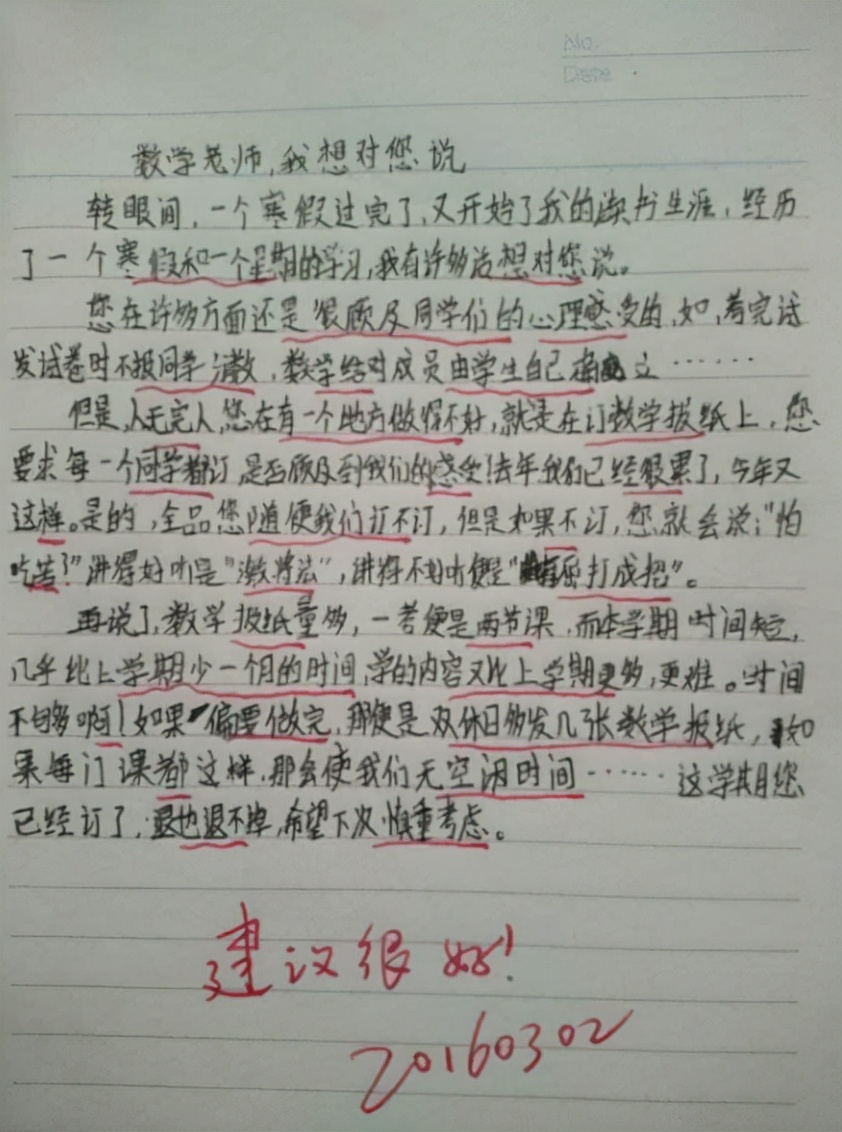 No.
Date
数学老师,我想对您说
转眼间,一个寒假过完了,又开始了我的读书生涯,经历
了一个寒假和一个星期的学习,我有许多话想对您说。
您在许多方面还是很顾及同学们的心理感受的,如,考完试
发试卷时不报同学分数,数学结对成员由学生自己确立……
但是,人无完人,您在有一个地方做得不好,就是在订数学报纸上,您
要求每一个同学都订,是否顾及到我们的感受!去年我们已经狠累了,今年又
这样。是的,全品您随便我们订不订,但是如果不订,您就会说:"怕
吃苦?"讲得好听是"激将法",讲得不好听便是"屈打成招"。
再说了,数学报纸量多,一考便是两节课,而本学期时间短,
几乎比上学期少一个月的时间,学的内容又比上学期更多,更难。时间
不够啊!如果偏要做完,那便是双休日多发几张数学报纸,如
果每门课都这样,那会使我们无空闲时间……这学期您
已经订了,退也退不掉,希望下次慎重考虑。
建议很好!
20160302